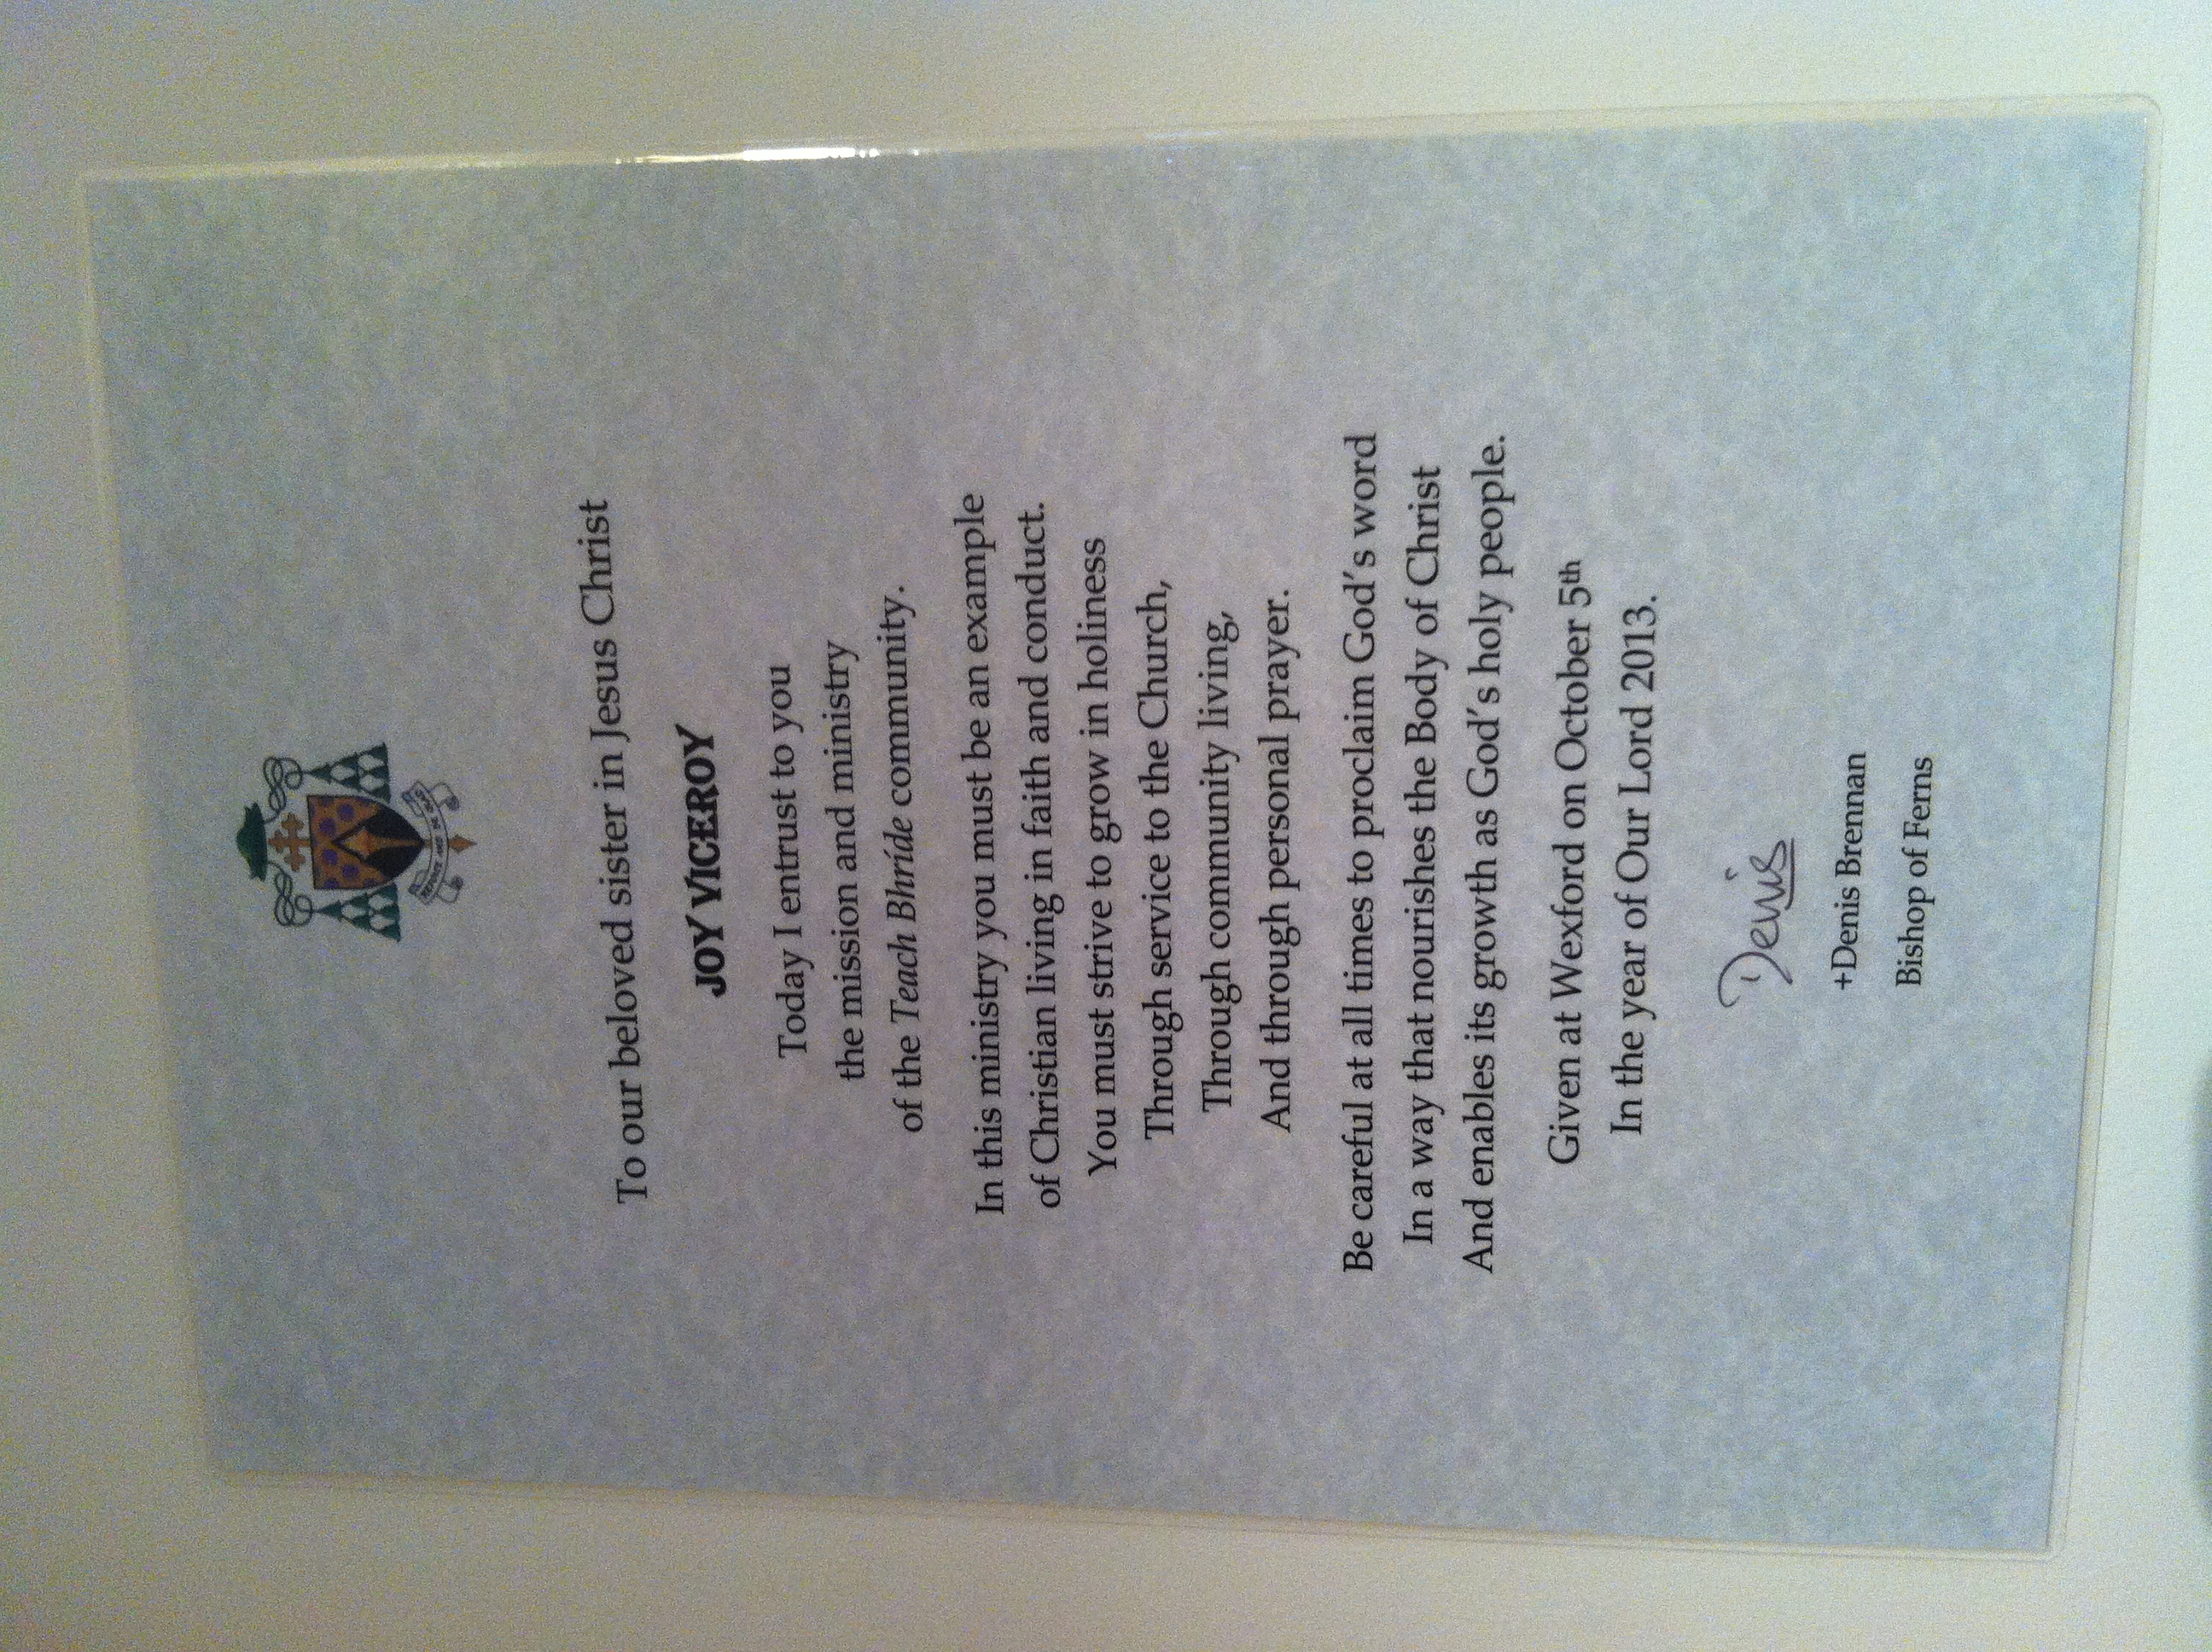 To our beloved sister in Jesus Christ
JOY VICEROY
Today I entrust to you
the mission and ministry
of the Teach Bhríde community.
In this ministry you must be an example
of Christian living in faith and conduct.
You must strive to grow in holiness
Through service to the Church,
Through community living,
And through personal prayer.
Be careful at all times to proclaim God's word
In a way that nourishes the Body of Christ
And enables its growth as God's holy people.
Given at Wexford on October 5th
In the year of Our Lord 2013.
Denis
+Denis Brennan
Bishop of Ferns